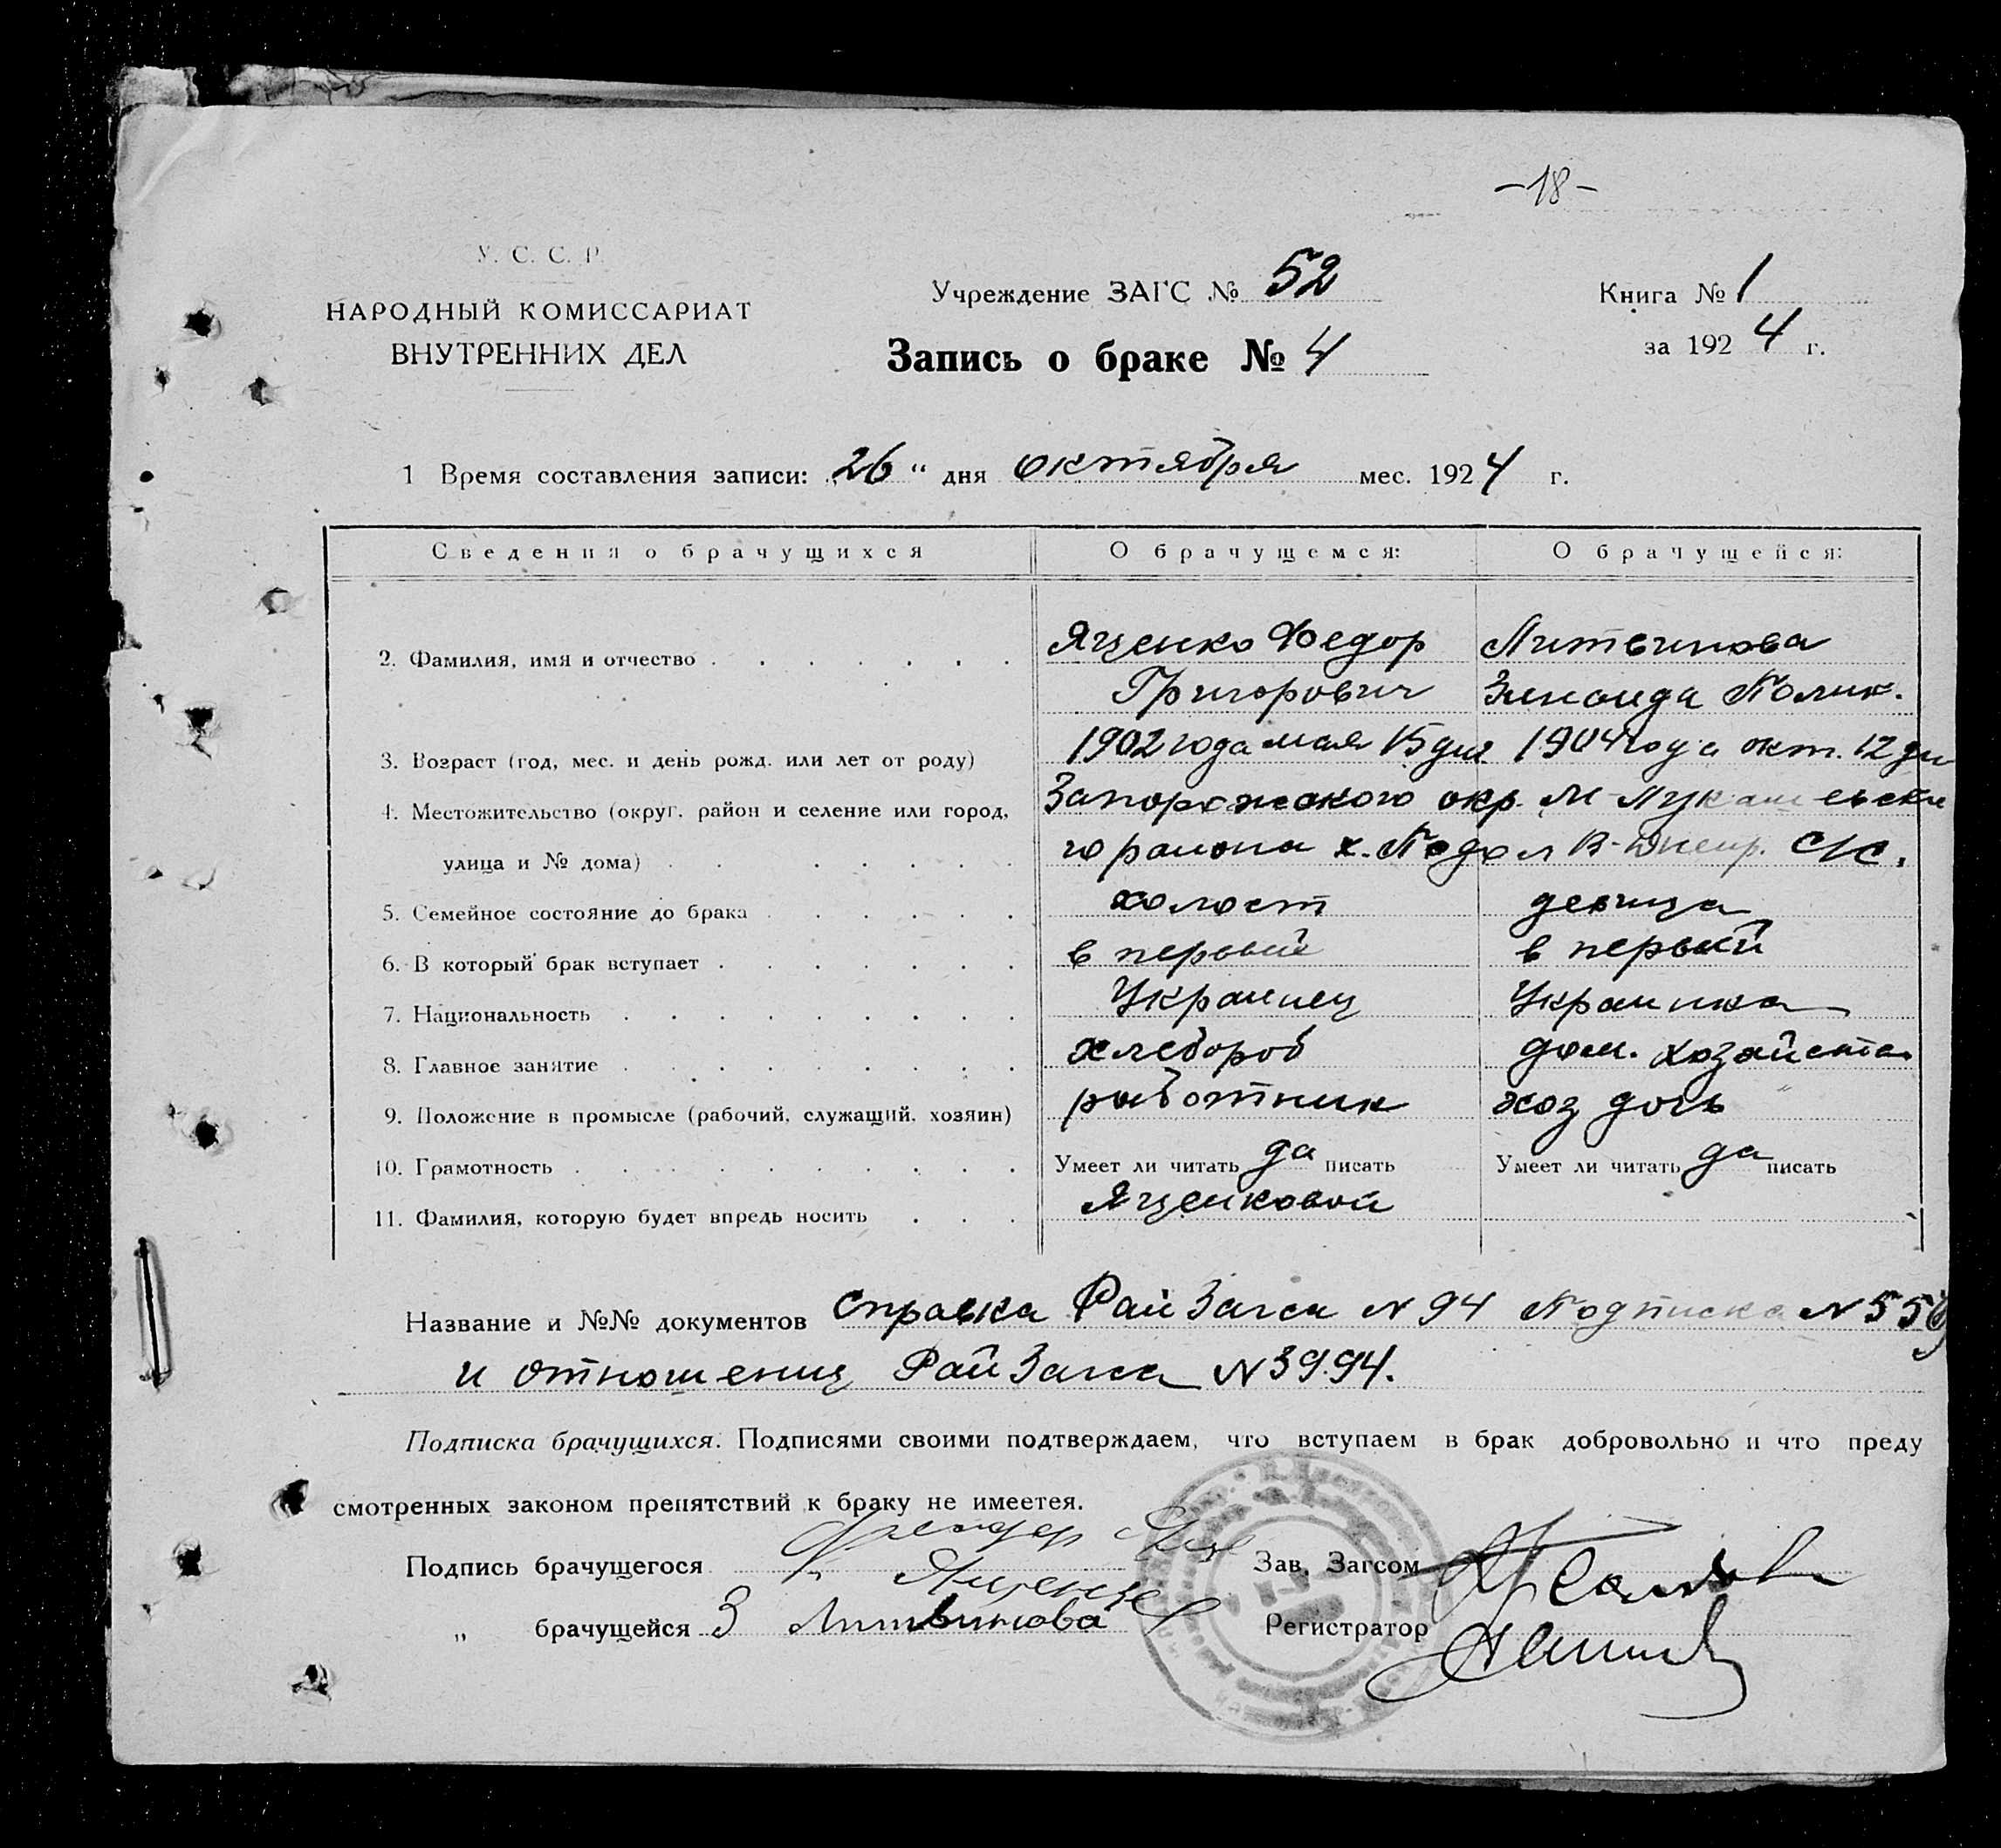 -18-
У. С. С. Р.
НАРОДНЫЙ КОМИССАРИАТ
ВНУТРЕННИХ ДЕЛ
Учреждение ЗАГС № 52
Запись о браке № 4
Книга № 1
за 1924 г.
1 Время составления записи: „26“ дня октября мес. 1924 г.
Сведения о брачущихся О брачущемся: О брачущейся:
2. Фамилия, имя и отчество Яценко Федор Литвинова
Григорович Зиноида Полик.
3. Возраст (год, мес. и день рожд. или лет от роду) 1902 года мая 15 дня 1904 года окт. 12 дн
4. Местожительство (округ, район и селение или город, Запорожского окр. М-Лукашевско
улица и № дома) го раиона х. Подол В-Днепр. С/С.
5. Семейное состояние до брака холост девица
6. В который брак вступает в первый в первый
7. Национальность Украинец Украинка
8. Главное занятие хлебороб дом. хозяйств.
9. Положение в промысле (рабочий, служащий, хозяин) работник хоз дочь
10. Грамотность Умеет ли читать да писать Умеет ли читать да писать
11. Фамилия, которую будет впредь носить Яценковой
Название и №№ документов Справка РайЗагса N 94 Подписка N
и отношениц РайЗагса N 3994.
Подписка брачущихся. Подписями своими подтверждаем, что вступаем в брак добровольно и что преду
смотренных законом препятствий к браку не имеетея.
Подпись брачущегося Феодор Яце
Яценко
„ брачущейся З Литвинова
Зав. Загсом
Регистратор